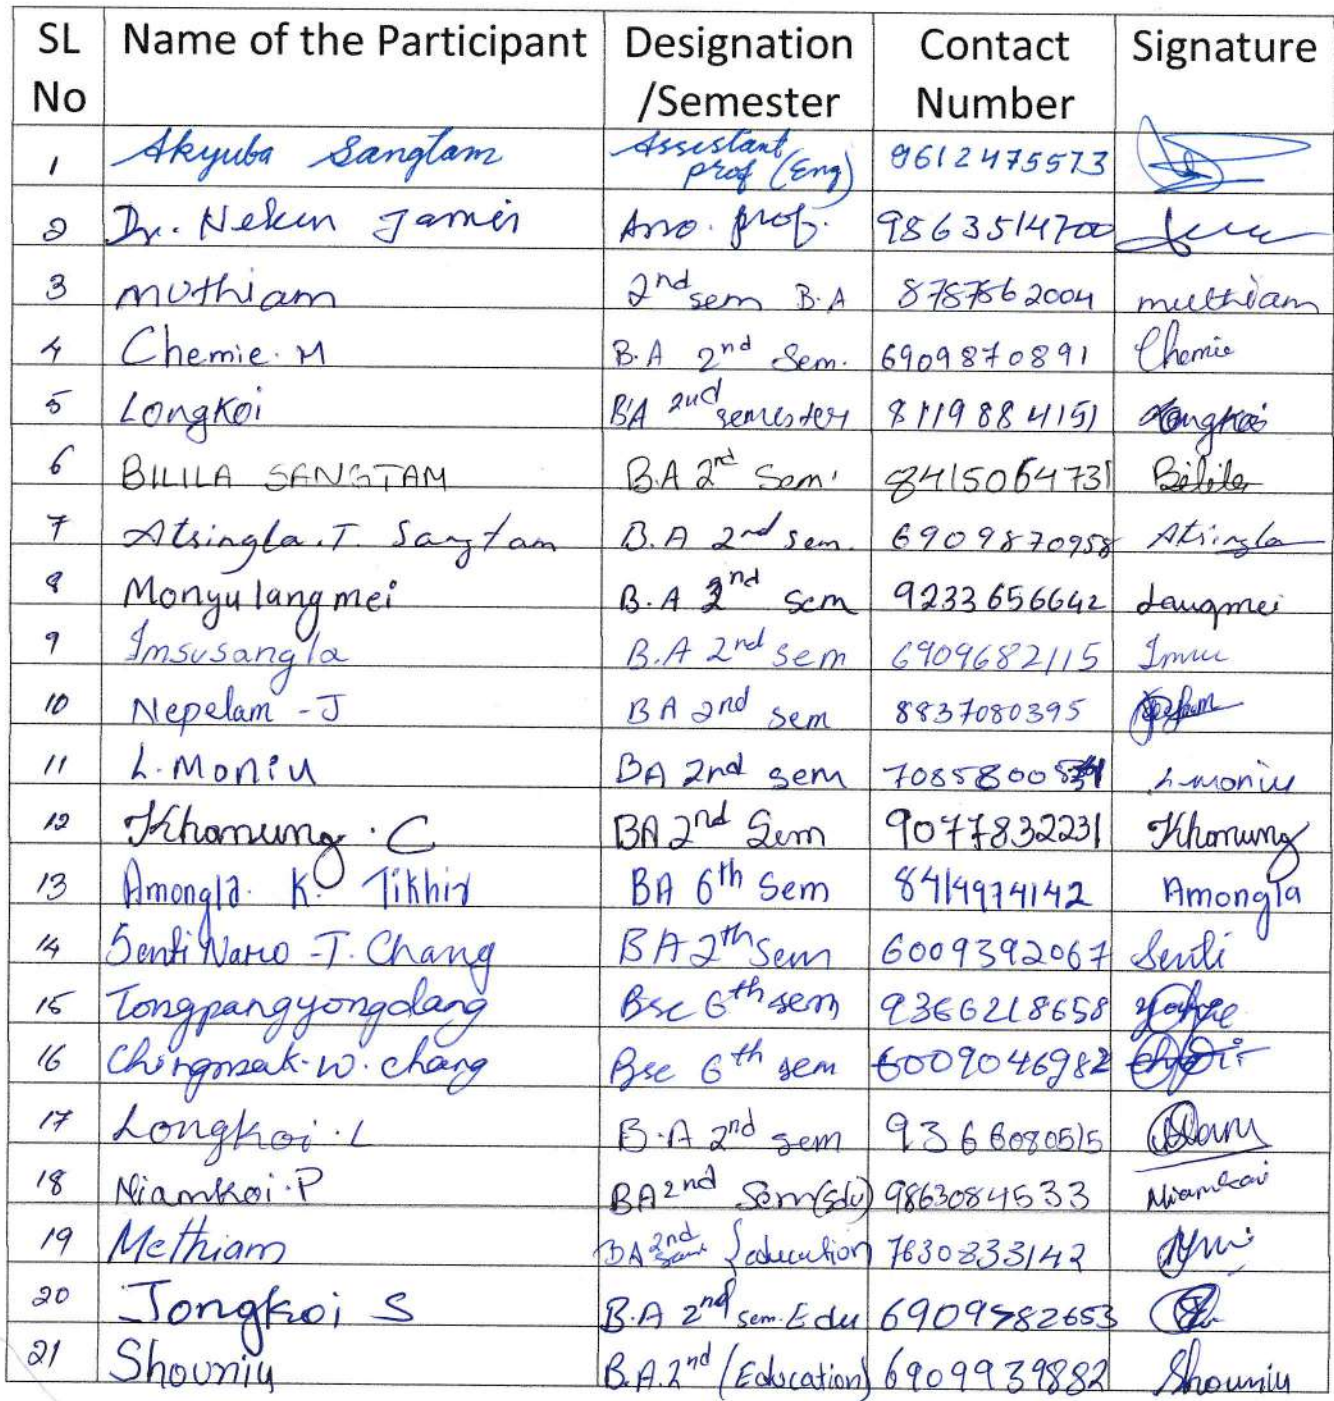 SL No | Name of the Participant | Designation /Semester | Contact Number | Signature
1 | Akyuba Sangtam | Assistant prof (Eng) | 9612475573 |
2 | Dr. Nekin Jamir | Asso. prof. | 9863514700 |
3 | muthiam | 2nd sem B.A | 8787562004 | muthiam
4 | Chemie. M | B.A 2nd Sem. | 6909870891 | Chemie
5 | Longkoi | BA 2nd semester | 8119884151 | Longkoi
6 | BILILA SANGTAM | B.A 2nd Sem. | 8415064731 | Bilila
7 | Atsingla. T. Sangtam | B.A 2nd sem. | 6909870958 | Atsingla
8 | Monyulangmei | B.A 2nd Sem | 9233656642 | Langmei
9 | Imsusangla | B.A 2nd sem | 6909682115 | Imsu
10 | Nepelam - J | BA 2nd sem | 8837080395 |
11 | L. Moniu | BA 2nd sem | | L. moniu
12 | Khomung. C | BA 2nd Sem | 9077832231 | Khomung
13 | Amongla. K. Tikhir | BA 6th Sem | 8414974142 | Amongla
14 | Senti Naro - T. Chang | BA 2th Sem | 6009392067 | Senti
15 | Tongpangyongdang | Bsc 6th sem | 9366218658 |
16 | W. chang | Bsc 6th sem | 6009046982 |
17 | Longkoi. L | B.A 2nd sem | 9366080515 |
18 | Niamkoi. P | BA 2nd Sem (Edu) | 9863084533 | Niamkoi
19 | Methiam | BA 2nd Sem (education | 7630833142 |
20 | Jongkoi S | B.A 2nd sem. Edu | 6909982653 |
21 | Shouniu | B.A. 2nd (Education) | 6909939882 | Shouniu